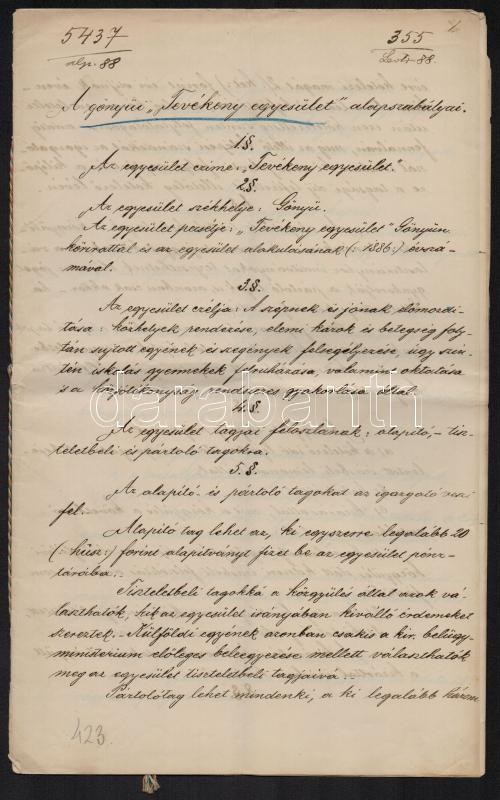 5437
alp. 88
355
88.
A gönyüi „Tevékeny egyesület" alapszabályai.
1§.
Az egyesület czime: „Tevékeny egyesület".
2§.
Az egyesület székhelye: Gönyü.
Az egyesület pecsétje: „Tevékeny egyesület" Gönyün
körirattal és az egyesület alakulásának (: 1886:) évszá-
mával.
3.§.
Az egyesület czélja: A szépnek és jónak előmozdi-
tása: közhelyek rendezése, elemi károk és betegség foly-
tán sujtott egyének és szegények felsegélyezése, úgy szin-
tén iskolás gyermekek felruházása, valamint oktatása
is a közjótékonyság rendszeres gyakorlása által.
4.§.
Az egyesület tagjai feloszlanak: alapitó,- tisz-
teletbeli és pártoló tagokra.
5.§.
Az alapitó- és pártoló tagokat az igazgató veszi
fel.
Alapitó tag lehet az, ki egyszerre legalább 20
(: húsz:) forint alapitványt fizet be az egyesület pénz-
tárába.
Tiszteletbeli tagokká a közgyűlés által azok vá-
laszthatók, kik az egyesület irányában kiválló érdemeket
szereztek. - Külföldi egyének azonban csakis a kir. belügy-
ministerium előleges beleegyezése mellett választhatók
meg az egyesület tiszteletbeli tagjaivá.
Pártolótag lehet mindenki, a ki legalább három
423.
darabanth